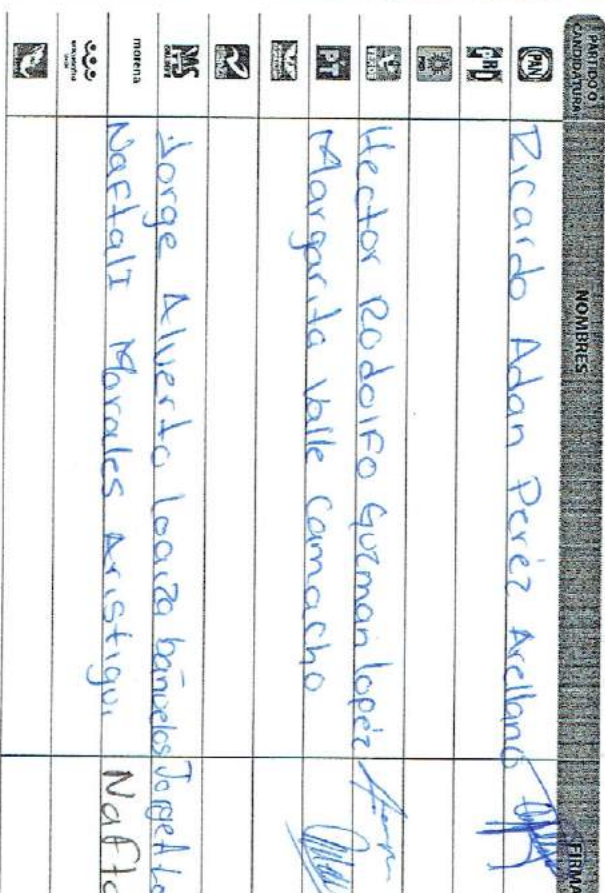 PARTIDO O CANDIDATURA NOMBRES FIRMA
PAN Ricardo Adan Peréz Arellano
PRI
PRD
VERDE Hector Rodolfo Guzman lopéz
PT Margarita Valle Camacho
MAS Jorge Alverto loaiza bañuelos Jorge A Lo
morena NaftalI Morales Aristigui Nafta